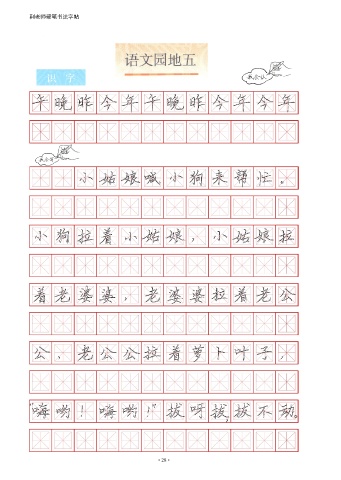 语文园地五
识字
我会认
午晚昨今年午晚昨今年今年
我会写
小姑娘喊小狗来帮忙。
小狗拉着小姑娘，小姑娘拉
着老婆婆，老婆婆拉着老公
公，老公公拉着萝卜叶子，
“嗨哟！嗨哟！”拔呀拔，拔不动。
·28·